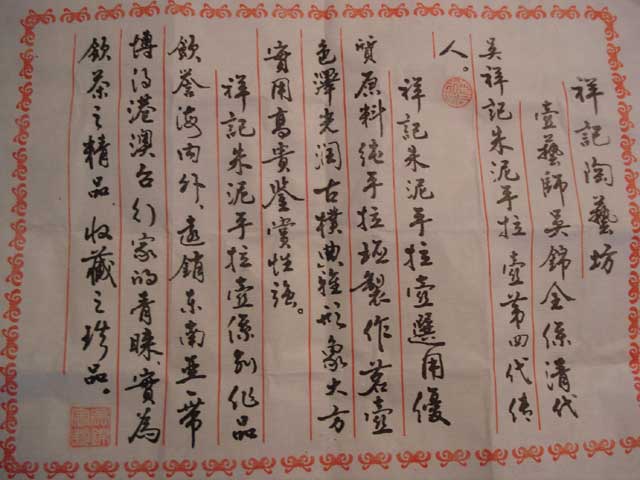 祥記陶藝坊
壺藝師吴錦全係清代
吴祥記朱泥手拉壺第四代傳
人。
祥記朱泥手拉壺選用優
質原料純手拉坯製作茗壺
色澤光润古樸典雅形象大方
實用高貴鉴賞性強。
祥記朱泥手拉壺係列作品
飲誉海内外、遠銷东南亚一帶
博得港澳台行家的青睐、實為
飲茶之精品、收藏之珍品。